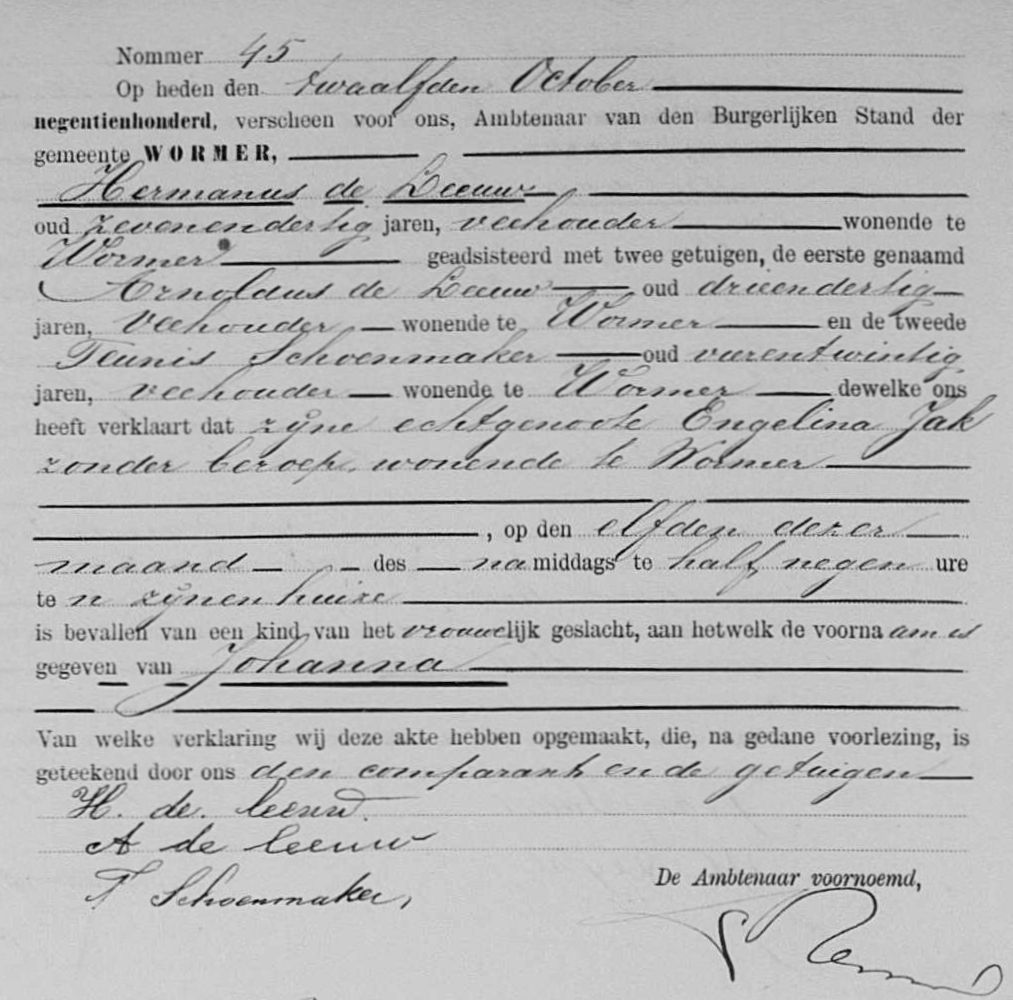 Nommer 45
Op heden den twaalfden October
negentienhonderd, verscheen voor ons, Ambtenaar van den Burgerlijken Stand der
gemeente WORMER,
Hermanus de Leeuw
oud zevenendertig jaren, veehouder wonende te
Wormer geadsisteerd met twee getuigen, de eerste genaamd
Arnoldus de Leeuw oud drieendertig
jaren, Veehouder, wonende te Wormer en de tweede
Teunis Schoenmaker oud vierentwintig
jaren, veehouder wonende te Wormer dewelke ons
heeft verklaart dat zijne echtgenoote Engelina Jak
zonder beroep, wonende te Wormer
, op den elfden dezer
maand des namiddags te half negen ure
te n zijnen huize
is bevallen van een kind van het vrouwelijk geslacht, aan hetwelk de voornaam is
gegeven van Johanna
Van welke verklaring wij deze akte hebben opgemaakt, die, na gedane voorlezing, is
geteekend door ons den comparant en de getuigen
H. de Leeuw.
A de Leeuw
T Schoenmaker,
De Ambtenaar voornoemd,